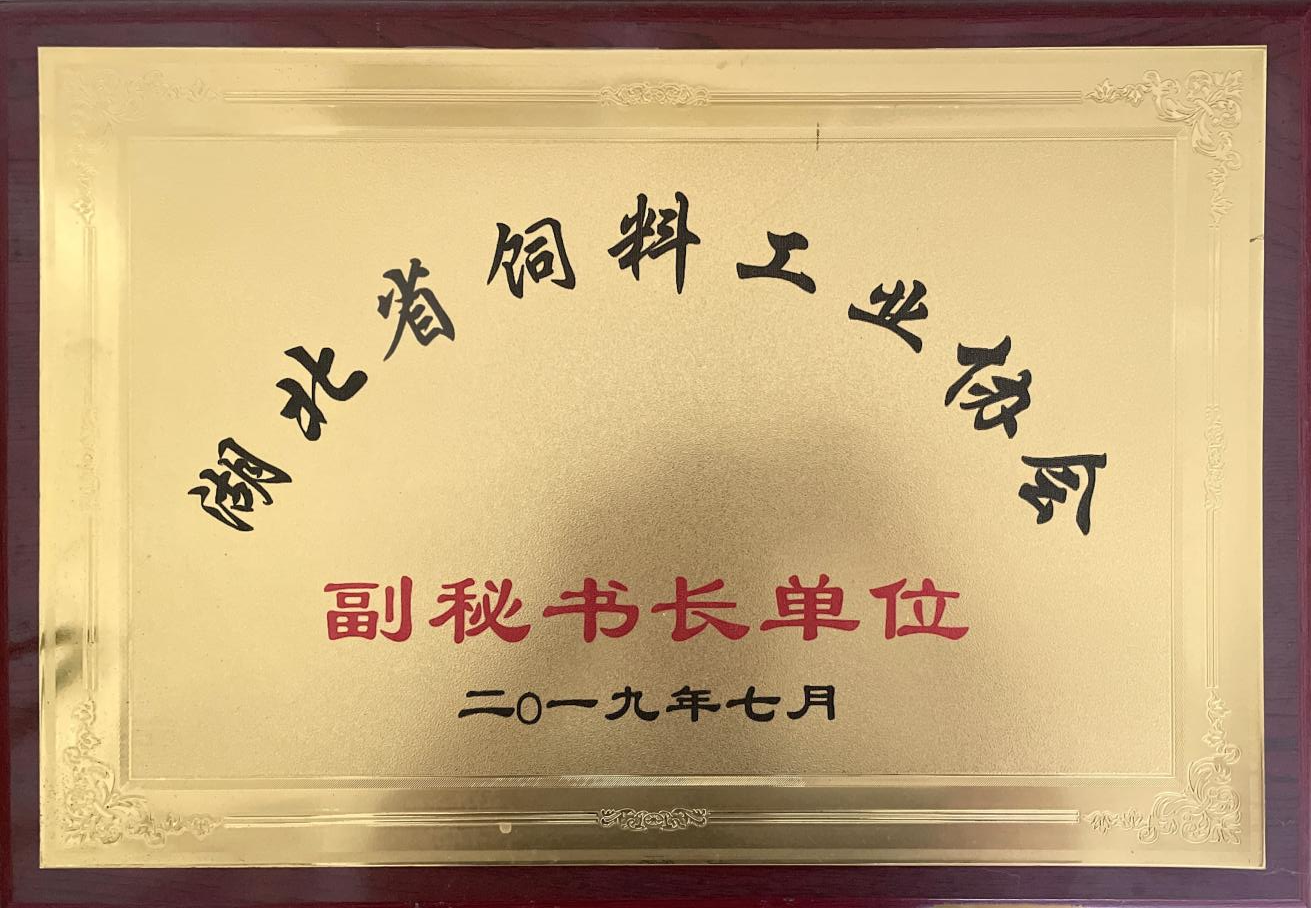 湖北省饲料工业协会
副秘书长单位
二〇一九年七月